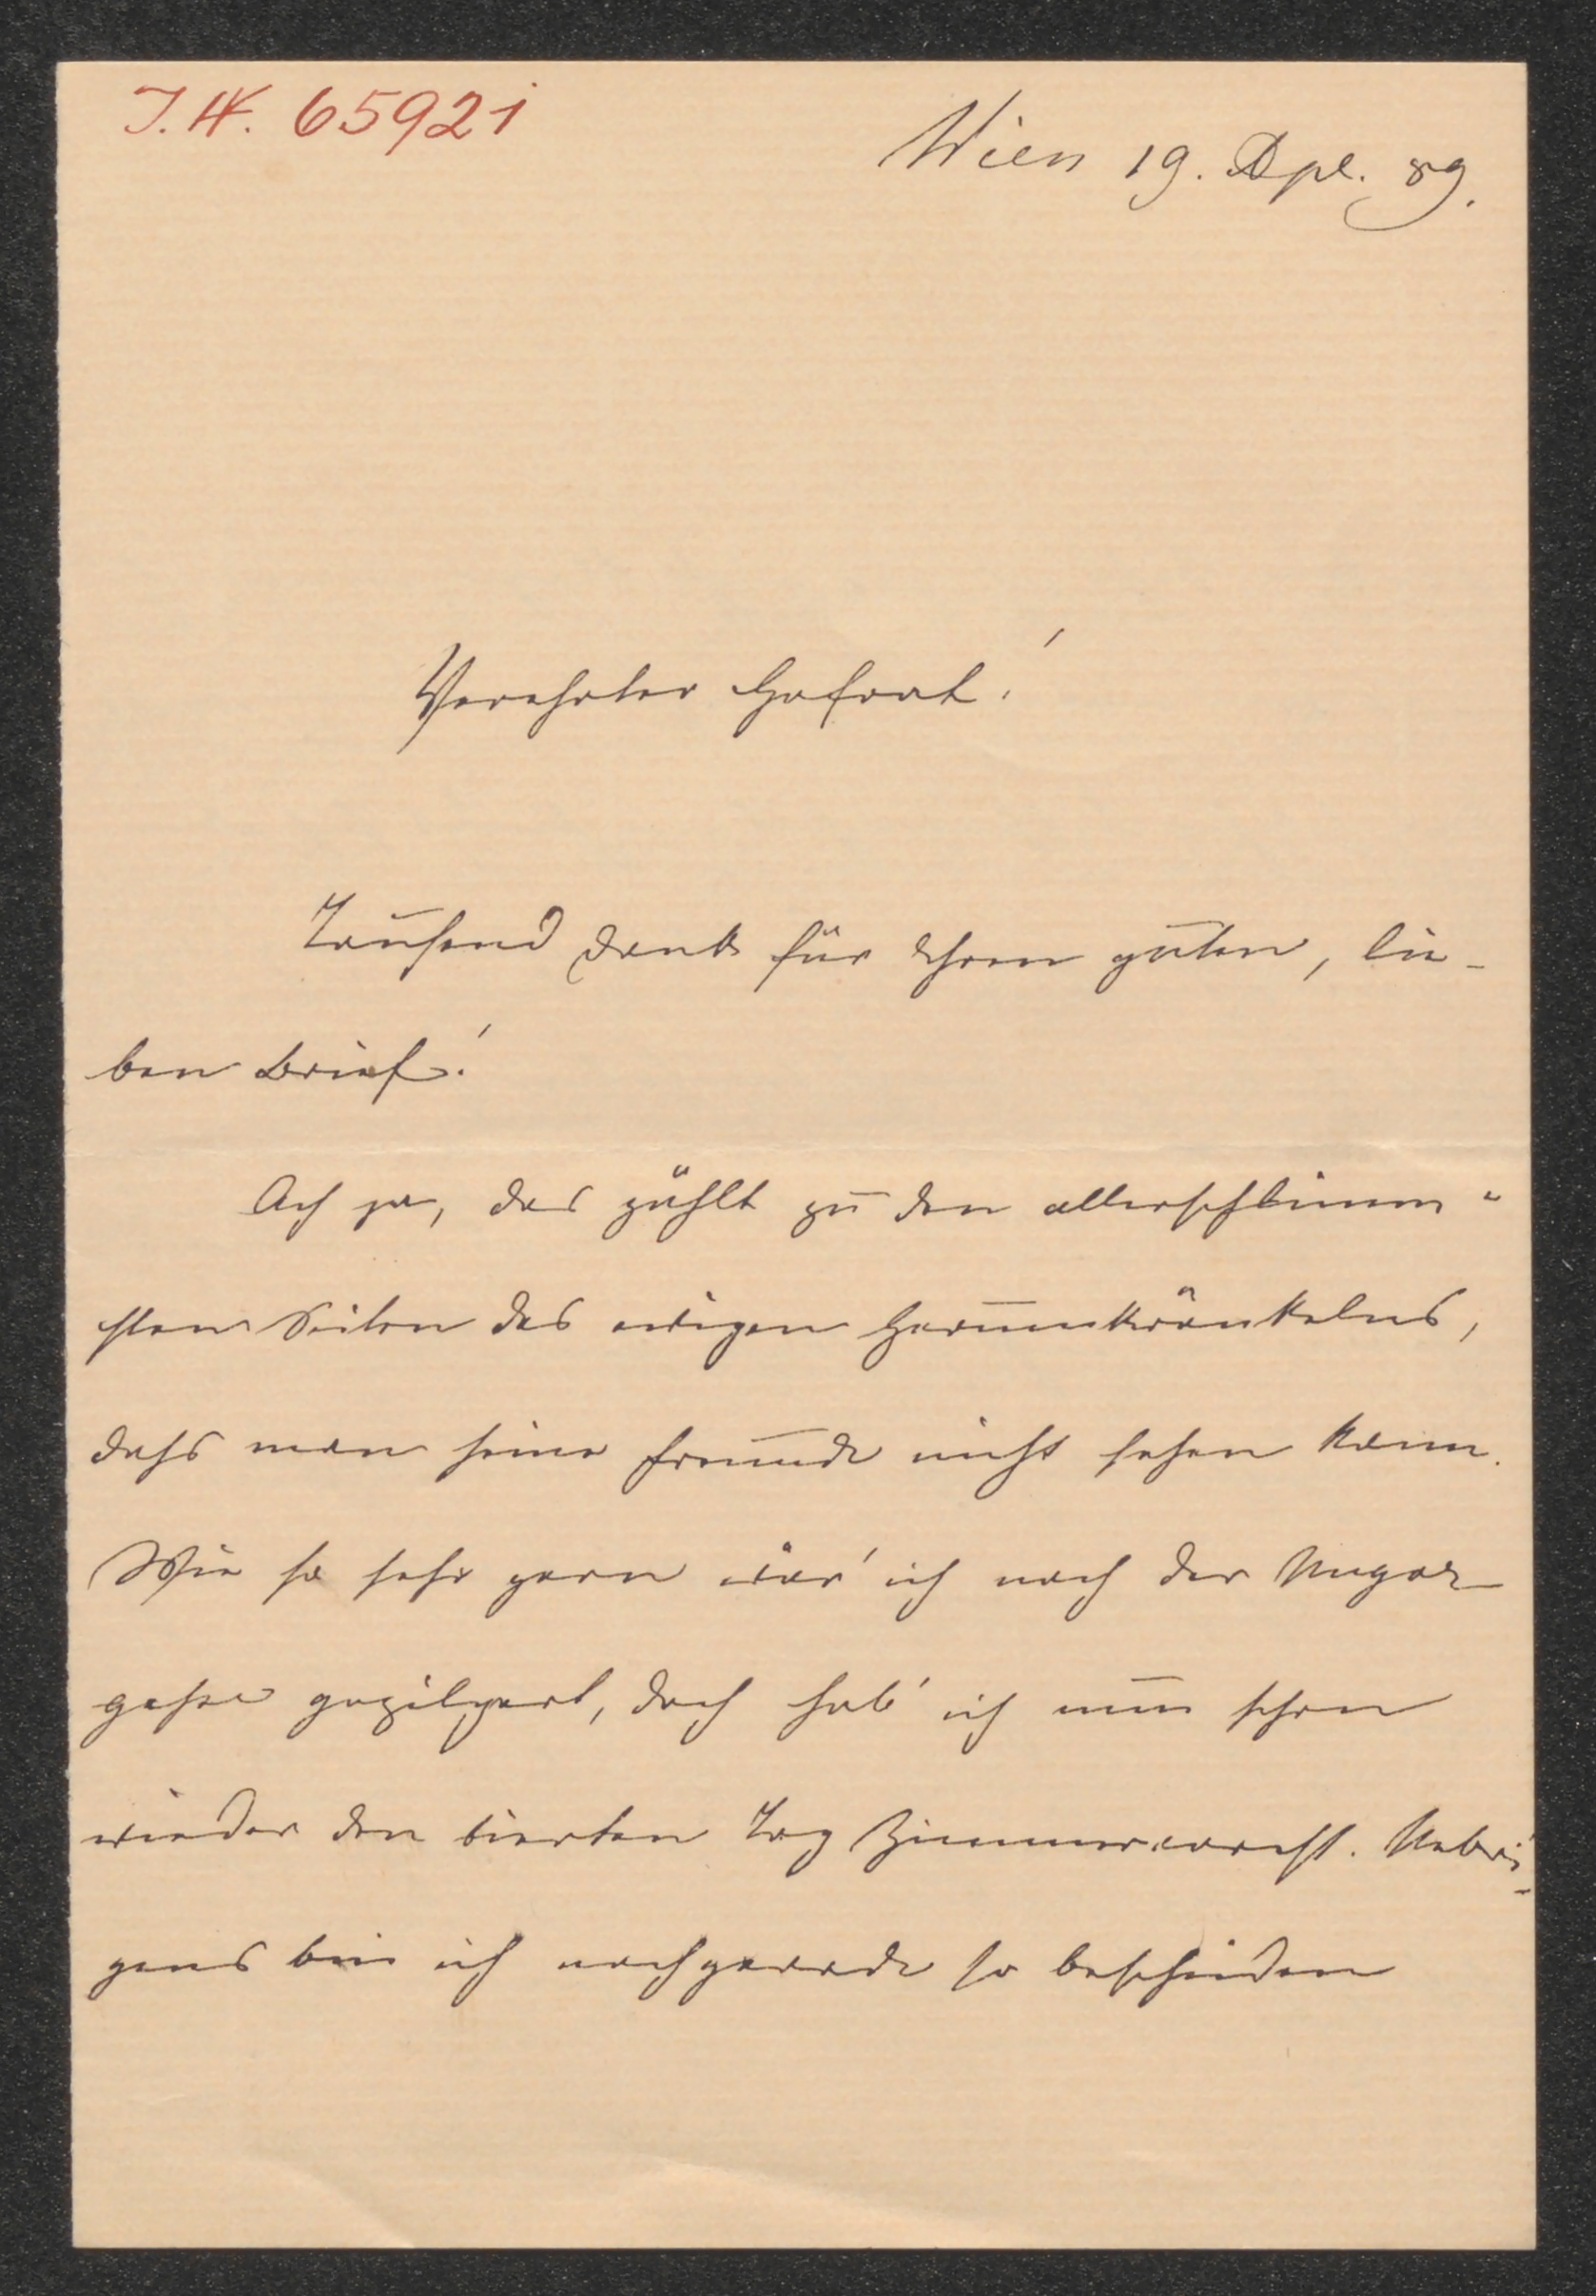 J.N. 65921
Wien 19. Apl. 89.
Verehrter Hofrat!
Tausend Dank für Ihren guten, lie-
ben Brief!
Ach ja, das zählt zu den allerschlimm-
sten Seiten des ewigen Herumkränkelns,
dass man seine Freunde nicht sehen kann.
Wie so sehr gern wär' ich nach der Ungar-
gasse gepilgert, doch hab' ich nun schon
wieder den vierten Tag Zimmerarrest. Uebri-
gens bin ich nachgerade so bescheiden